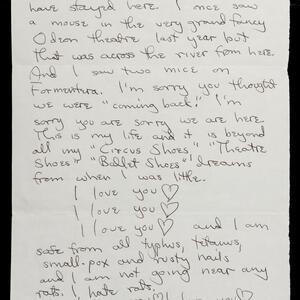 have stayed here. I once saw
a mouse in the very grand fancy
Odeon theatre last year but
that was across the river from here.
And I saw two mice on
Formentera. I'm sorry you thought
we were "coming back." I'm
sorry you are sorry we are here.
This is my life and it is beyond
all my "Circus Shoes", "Theatre
Shoes", "Ballet Shoes" dreams
from when I was little.
I love you ♡
I love you ♡
I love you ♡ and I am
safe from all typhus, tetanus,
small-pox and rusty nails
and I am not going near any
rats. I hate rats.
I love you ♡